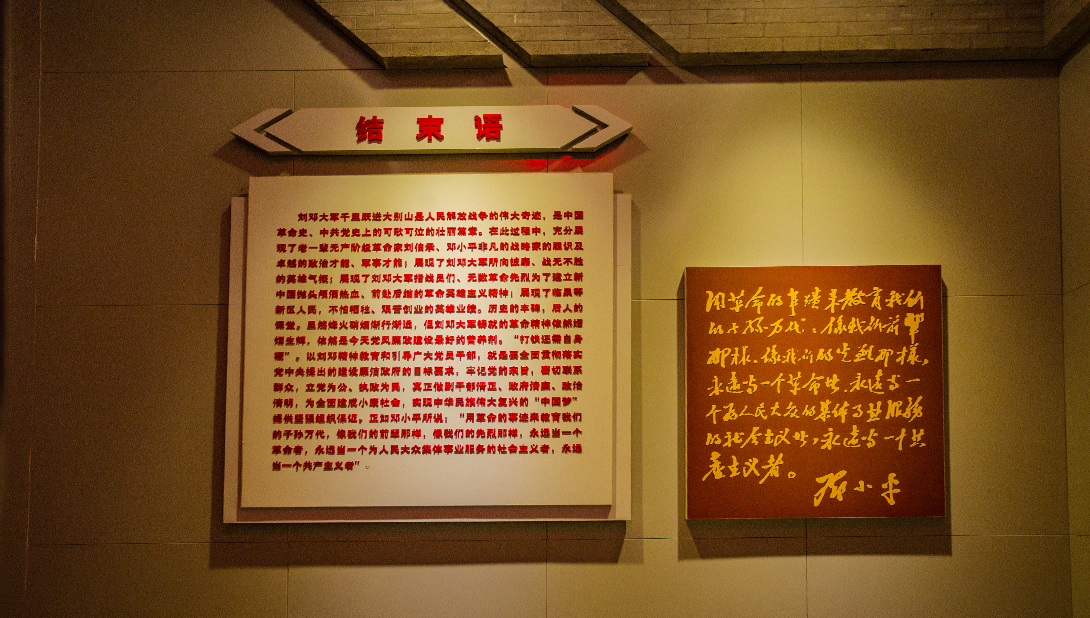 结束语
刘邓大军千里跃进大别山是人民解放战争的伟大奇迹，是中国
革命史、中共党史上的可歌可泣的壮丽篇章。在此过程中，充分展
现了老一辈无产阶级革命家刘伯承、邓小平非凡的战略家的胆识及
卓越的政治才能、军事才能；展现了刘邓大军所向披靡、战无不胜
的英雄气概；展现了刘邓大军指战员们、无数革命先烈为了建立新
中国抛头颅洒热血、前赴后继的革命英雄主义精神；展现了临泉等
新区人民，不怕牺牲、艰苦创业的英雄业绩。历史的丰碑，后人的
课堂。虽然烽火硝烟渐行渐远，但刘邓大军铸就的革命精神依然熠
熠生辉，依然是今天党风廉政建设最好的营养剂。“打铁还需自身
硬”。以刘邓精神教育和引导广大党员干部，就是要全面贯彻落实
党中央提出的建设廉洁政府的目标要求，牢记党的宗旨，密切联系
群众，立党为公、执政为民，真正做到干部清正、政府清廉、政治
清明，为全面建成小康社会，实现中华民族伟大复兴的“中国梦”
提供坚强组织保证。正如邓小平所说：“用革命的事迹来教育我们
的子孙万代，像我们的前辈那样，像我们的先烈那样，永远当一个
革命者，永远当一个为人民大众集体事业服务的社会主义者，永远
当一个共产主义者”。
用革命的事迹来教育我们
的子孙万代，像我们前辈
那样，像我们的先烈那样，
永远当一个革命者，永远当一
个为人民大众的集体事业服务
的社会主义者，永远当一个共
产主义者。
邓小平